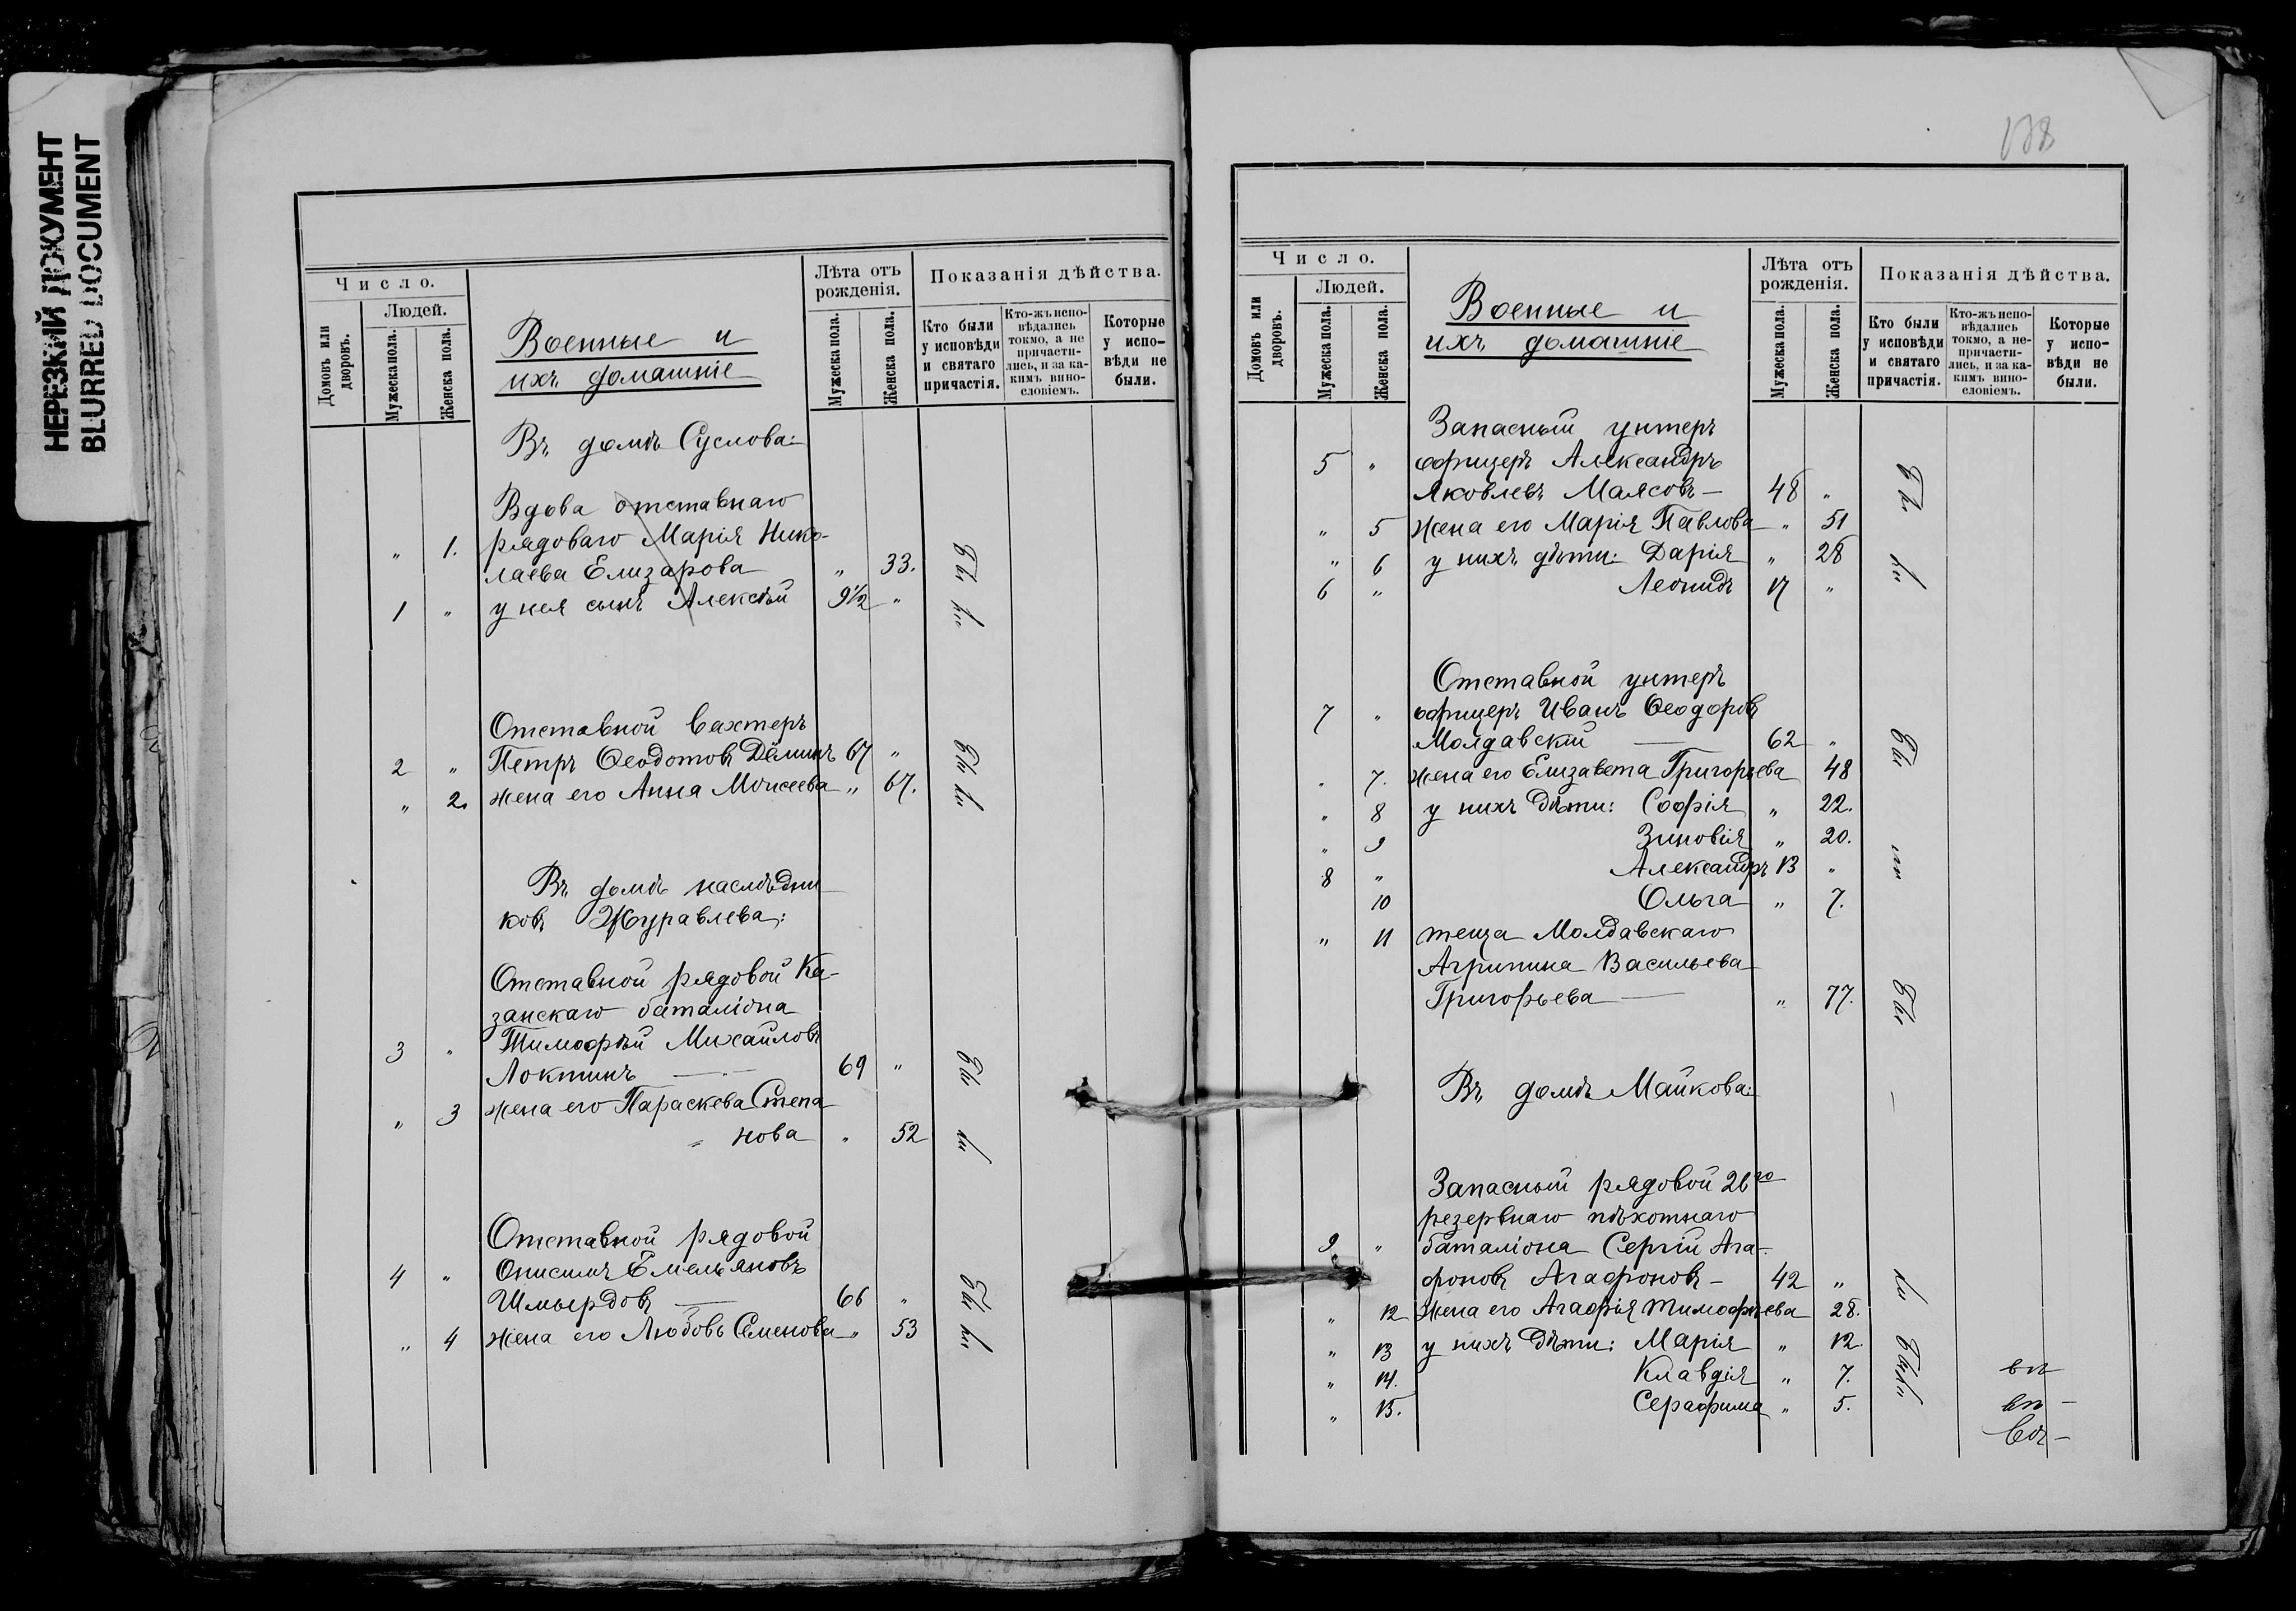 НЕРЕЗКИЙ ДОКУМЕНТ
BLURRED DOCUMENT
Число.
Людей.
Домовъ или дворовъ.
Мужеска пола.
Женска пола.
Военные и
ихъ домашніе
Лѣта отъ рожденія.
Мужеска пола.
Женска пола.
Показанія дѣйства.
Кто были у исповѣди и святаго причастія.
Кто-жъ испо-вѣдались токмо, а не причасти-лись, и за ка-кимъ вино-словіемъ.
Которые у испо-вѣди не были.
Въ домѣ Суслова:
Вдова отставнаго
„ 1. рядоваго Марія Нико-
лаева Елизарова „ 33.
1 „ у нея сынъ Алексѣй 9½ „
Отставной вахтеръ
2 „ Петръ Ѳеодотовъ Дёминъ 67 „
„ 2. жена его Анна Моисеева „ 67.
Въ домѣ наслѣдни
ковъ Журавлева:
Отставной рядовой Ка-
занскаго баталіона
3 „ Тимофѣй Михайловъ
Локтинъ 69 „
„ 3 жена его Параскева Степа
нова „ 52
Отставной рядовой
4 „ Онисимъ Емельяновъ
Шмырдовъ 66 „
„ 4 жена его Любовь Семенова „ 53
Число.
Людей.
Домовъ или дворовъ.
Мужеска пола.
Женска пола.
Военные и
ихъ домашніе
Лѣта отъ рожденія.
Мужеска пола.
Женска пола.
Показанія дѣйства.
Кто были у исповѣди и святаго причастія.
Кто-жъ испо-вѣдались токмо, а не-причасти-лись, и за ка-кимъ вино-словіемъ.
Которые у испо-вѣди не были.
Запасный унтеръ
5 „ офицеръ Александръ
Яковлевъ Малясовъ – 48 „
„ 5 жена его Марія Павлова „ 51
„ 6 у нихъ дѣти: Дарія „ 28
6 „ Леонидъ 17 „
Отставной унтеръ
7 „ офицеръ Иванъ Ѳеодоровъ
Молдавскій 62 „
„ 7. жена его Елизавета Григорьева 48
„ 8 у нихъ дѣти: Софія „ 22.
„ 9 Зиновія „ 20.
8 „ Александръ 13 „
10 Ольга „ 7.
„ 11 теща Молдавскаго
Агрипина Васильева
Григорьева „ 77.
Въ домѣ Майкова:
Запасный рядовой 26го
резервнаго пѣхотнаго
9 „ баталіона Сергій Ага-
фоновъ Агафоновъ – 42 „
„ 12 жена его Агафія Тимофѣева 28.
„ 13 у нихъ дѣти: Марія „ 12.
„ 14. Клавдія „ 7.
„ 15. Серафима „ 5.